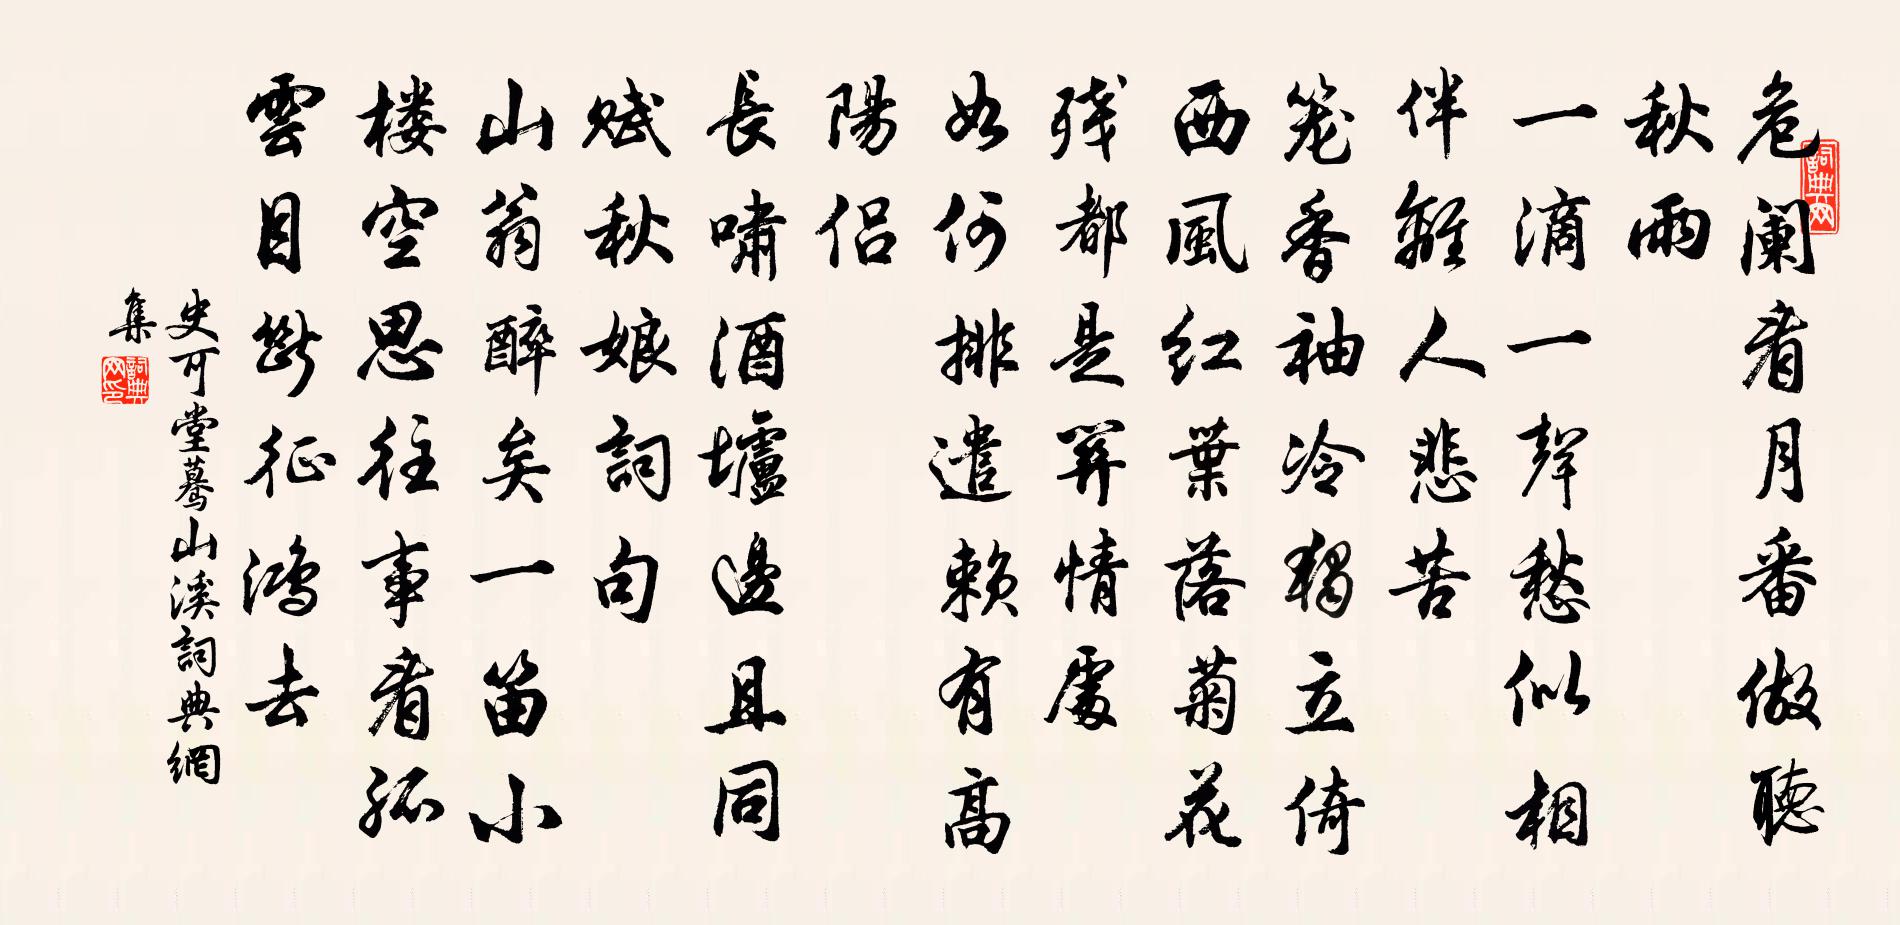 危阑看月番做聽
秋雨
一滴一聲愁似相
伴離人悲苦
笼香袖冷獨立倚
西風红葉落菊花
残都是關情處
如何排遣赖有高
陽侣
長嘯酒壚邊且同
赋秋娘詞句
山翁醉矣一笛小
楼空思往事看孤
雲目斷征鴻去
史可堂蓦山溪詞典網
集
詞典网
詞典网印